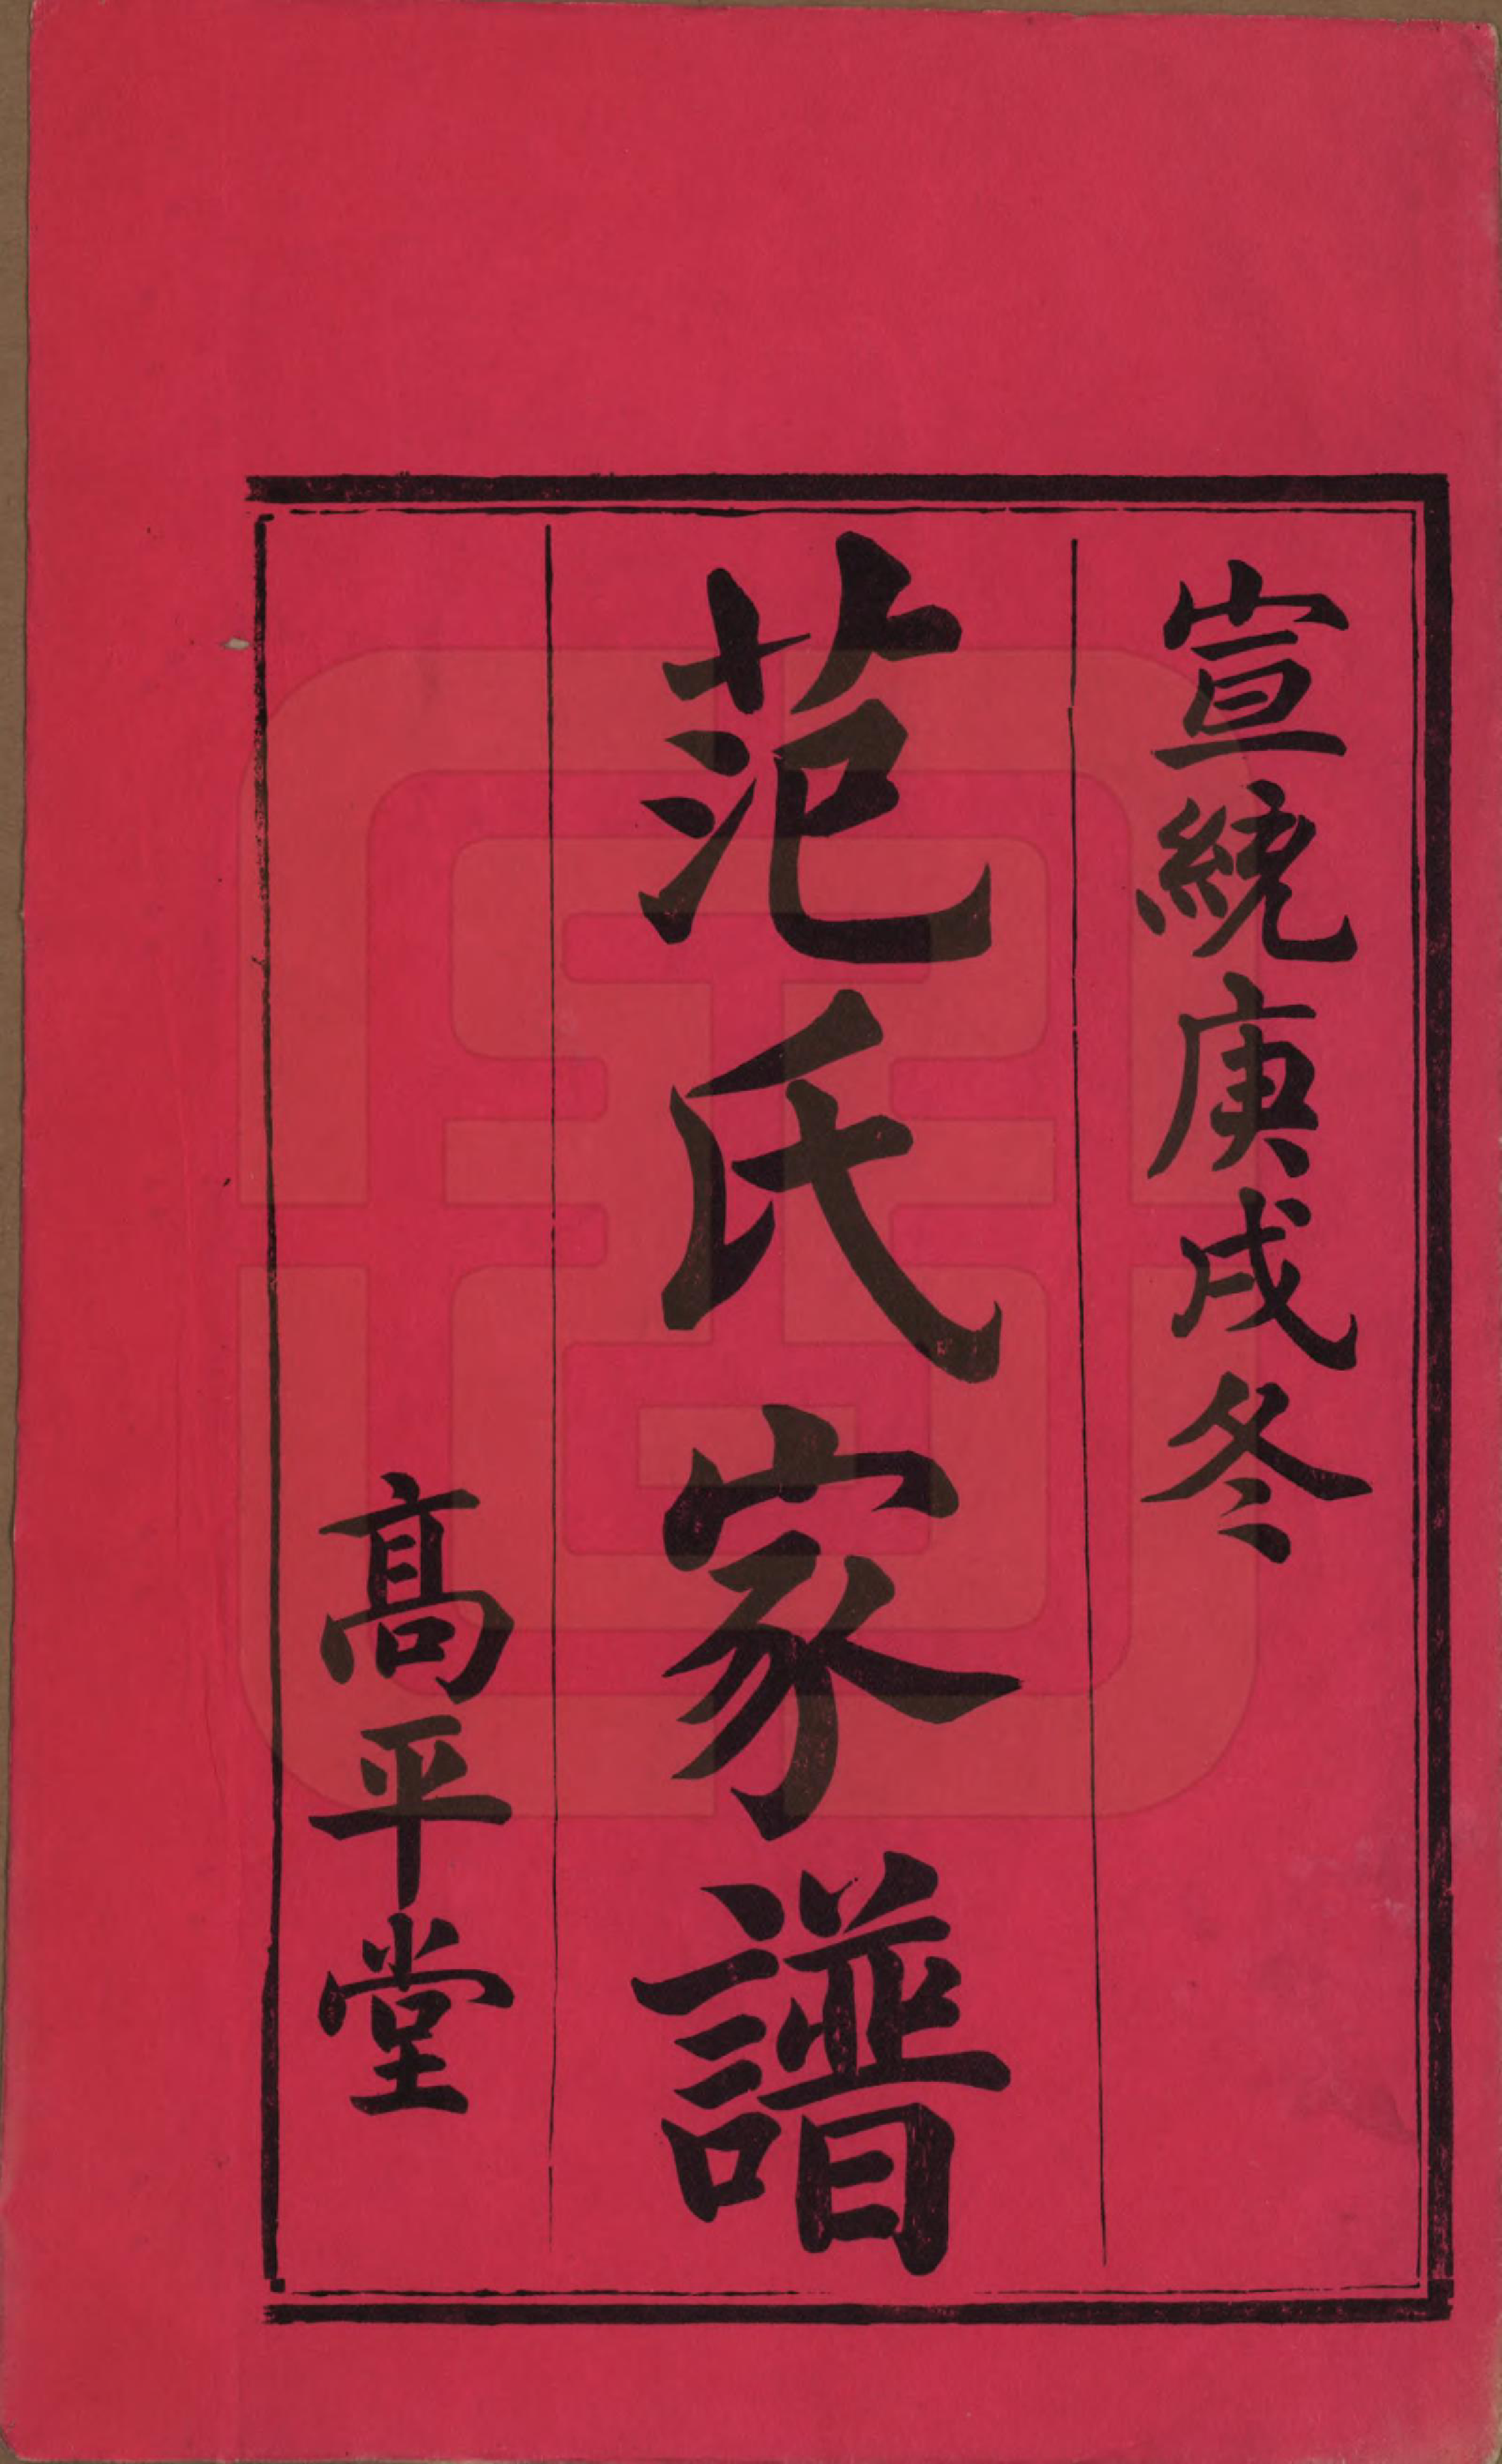 宣統庚戌冬
范氏家譜
髙平堂